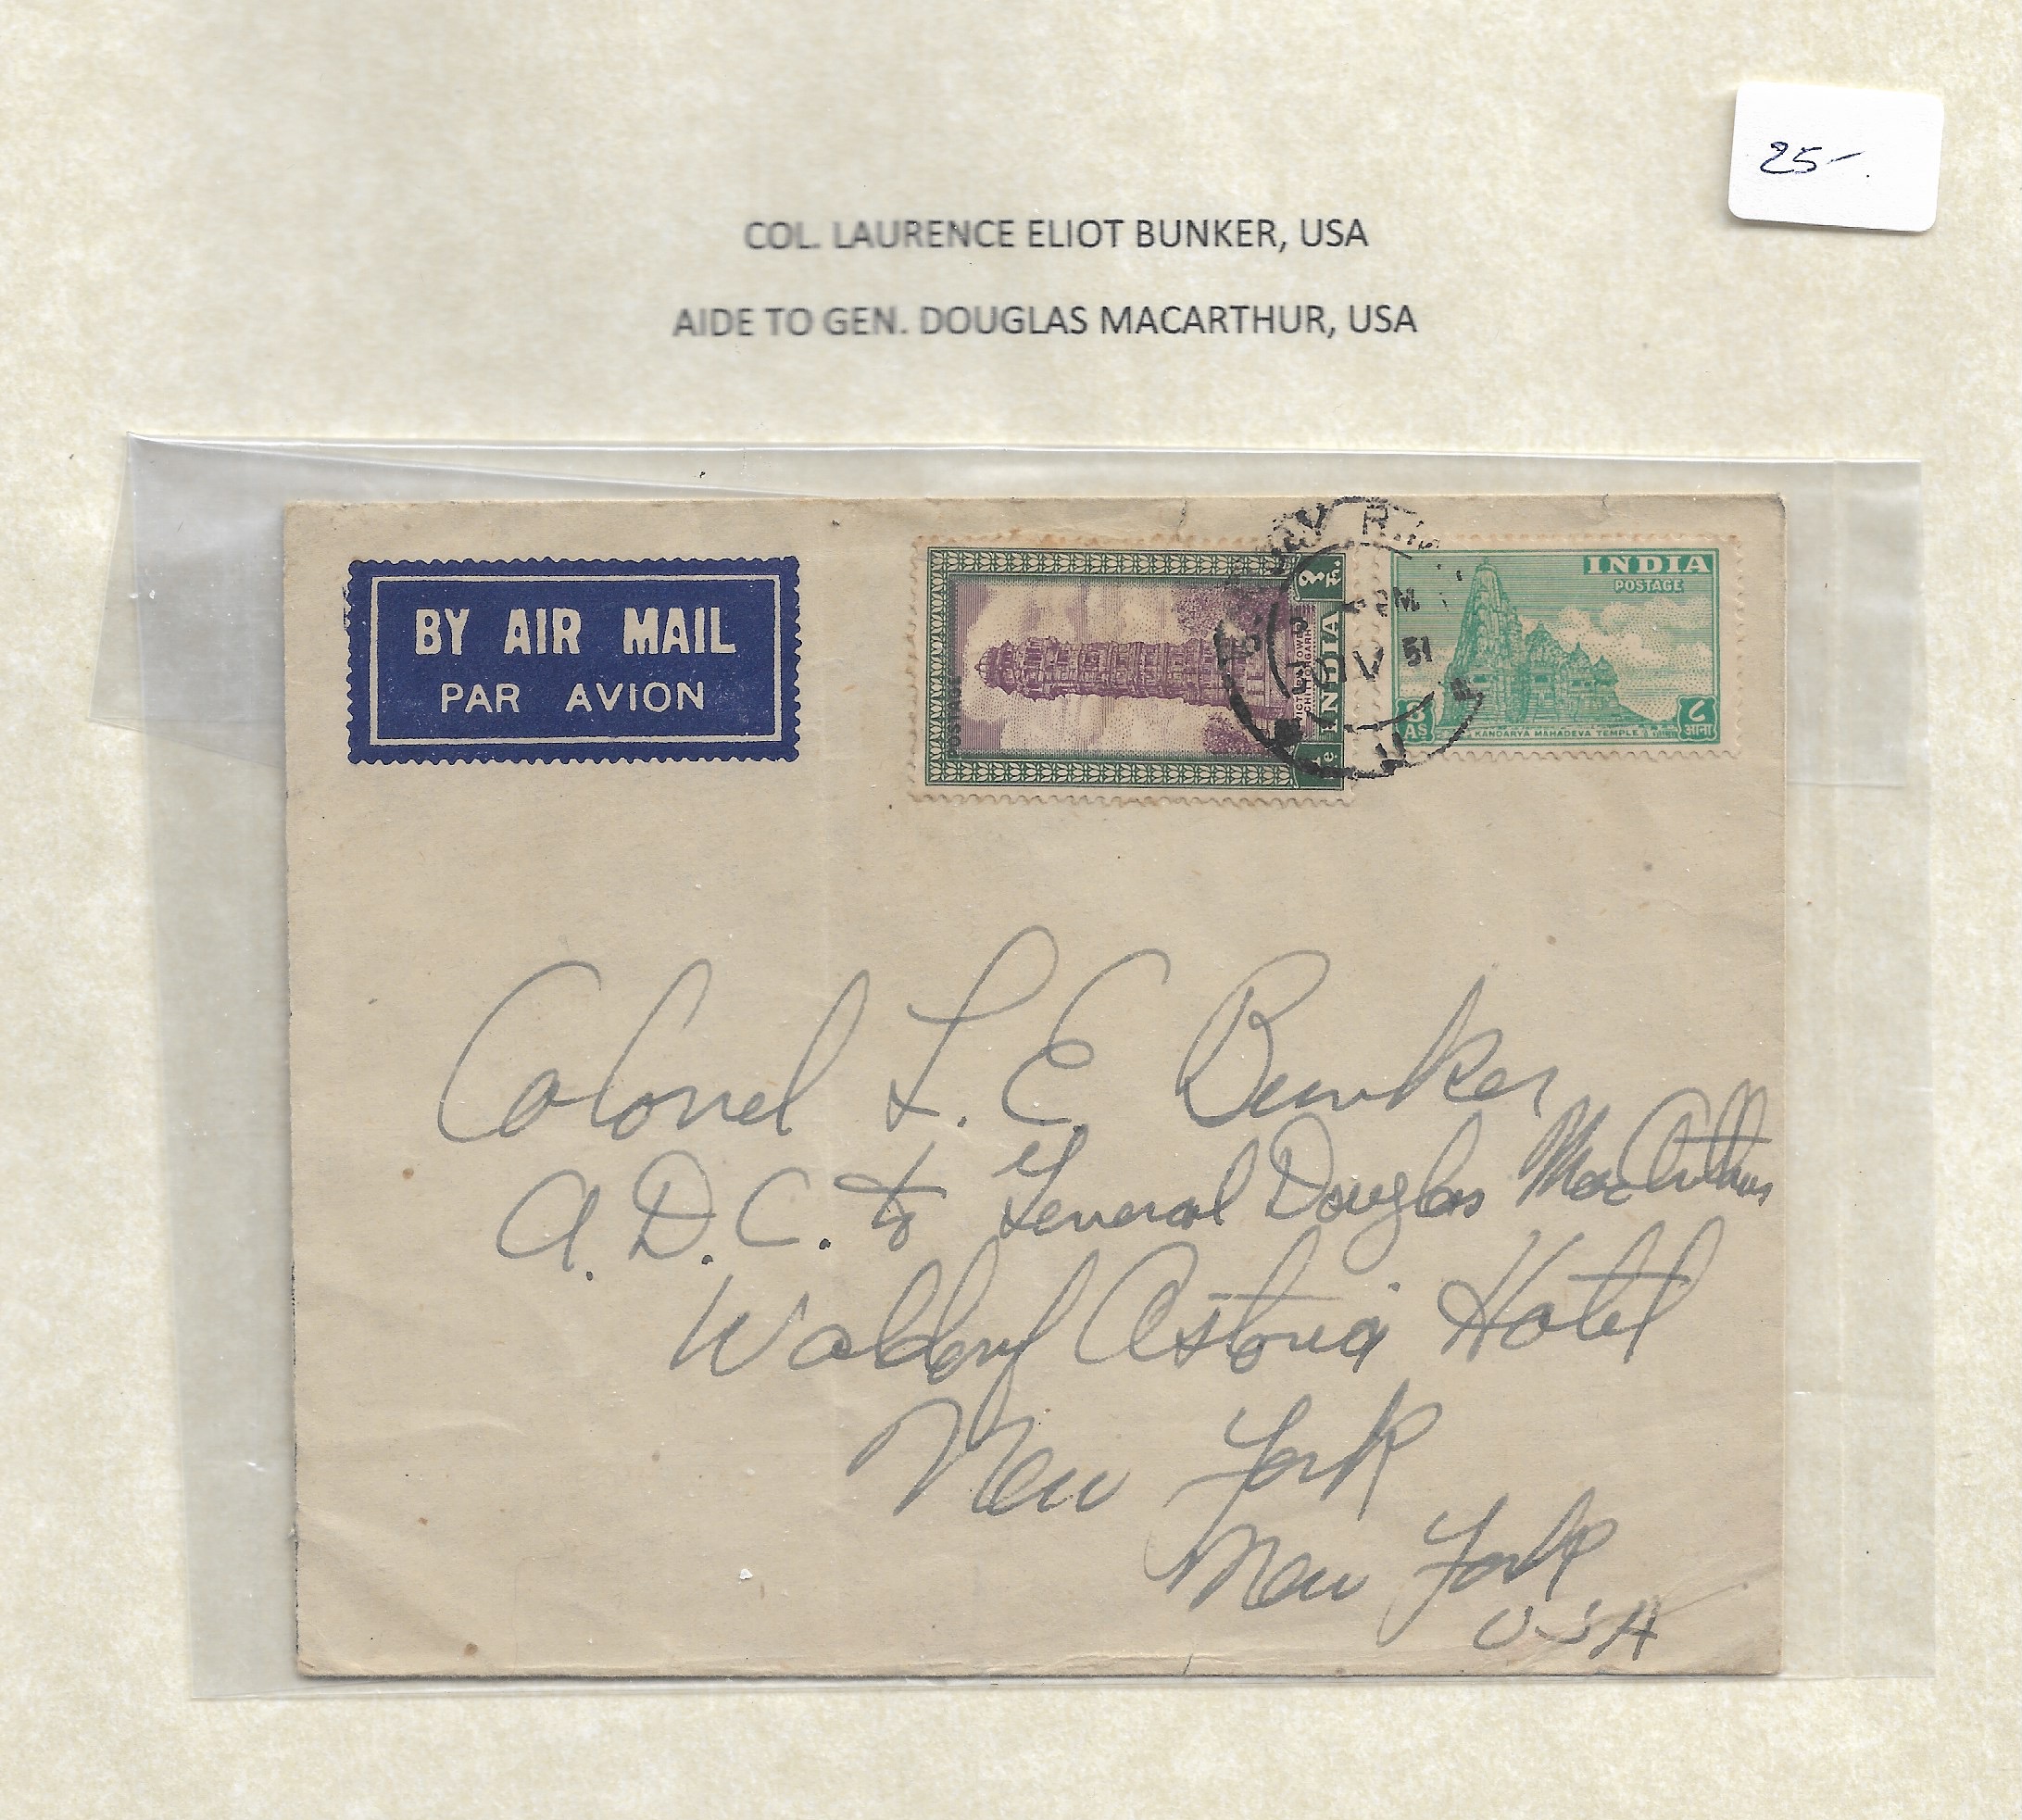 25-.
COL. LAURENCE ELIOT BUNKER, USA
AIDE TO GEN. DOUGLAS MACARTHUR, USA
BY AIR MAIL
PAR AVION
INDIA
१ रु.
VICTORY TOWER
CHITTORGARH
51
INDIA
POSTAGE
8 As
८ आना
KANDARYA MAHADEVA TEMPLE
Colonel L. E Bunker
A. D. C. to General Douglas MacArthur
Waldorf Astoria Hotel
New York
New York
USA